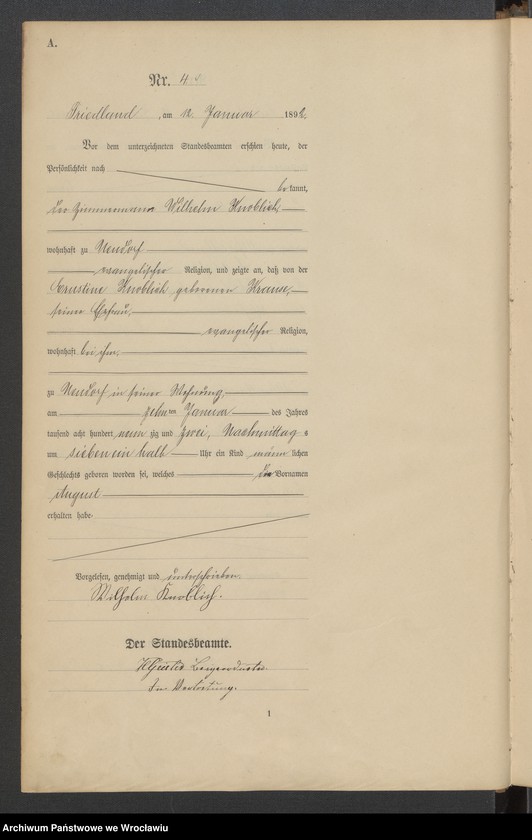 A.
Nr. 4
Friedland, am 12. Januar 1892.
Vor dem unterzeichneten Standesbeamten erschien heute, der
Persönlichkeit nach
be kannt,
der Zimmermann Wilhelm Knoblich
wohnhaft zu Neudorf
evangelischer Religion, und zeigte an, daß von der
Ernestine Knoblich geborenen
seiner Ehefrau,
evangelischer Religion,
wohnhaft bei ihm,
zu Neudorf in seiner Wohnung,
am zehn ten Januar des Jahres
tausend acht hundert neun zig und zwei, Nachmittag s
um sieben ein halb Uhr ein Kind männ lichen
Geschlechts geboren worden sei, welches den Vornamen
August
erhalten habe.
Vorgelesen, genehmigt und unterschrieben.
Wilhelm Knoblich.
Der Standesbeamte.
In Vertretung.
1
Archiwum Państwowe we Wrocławiu